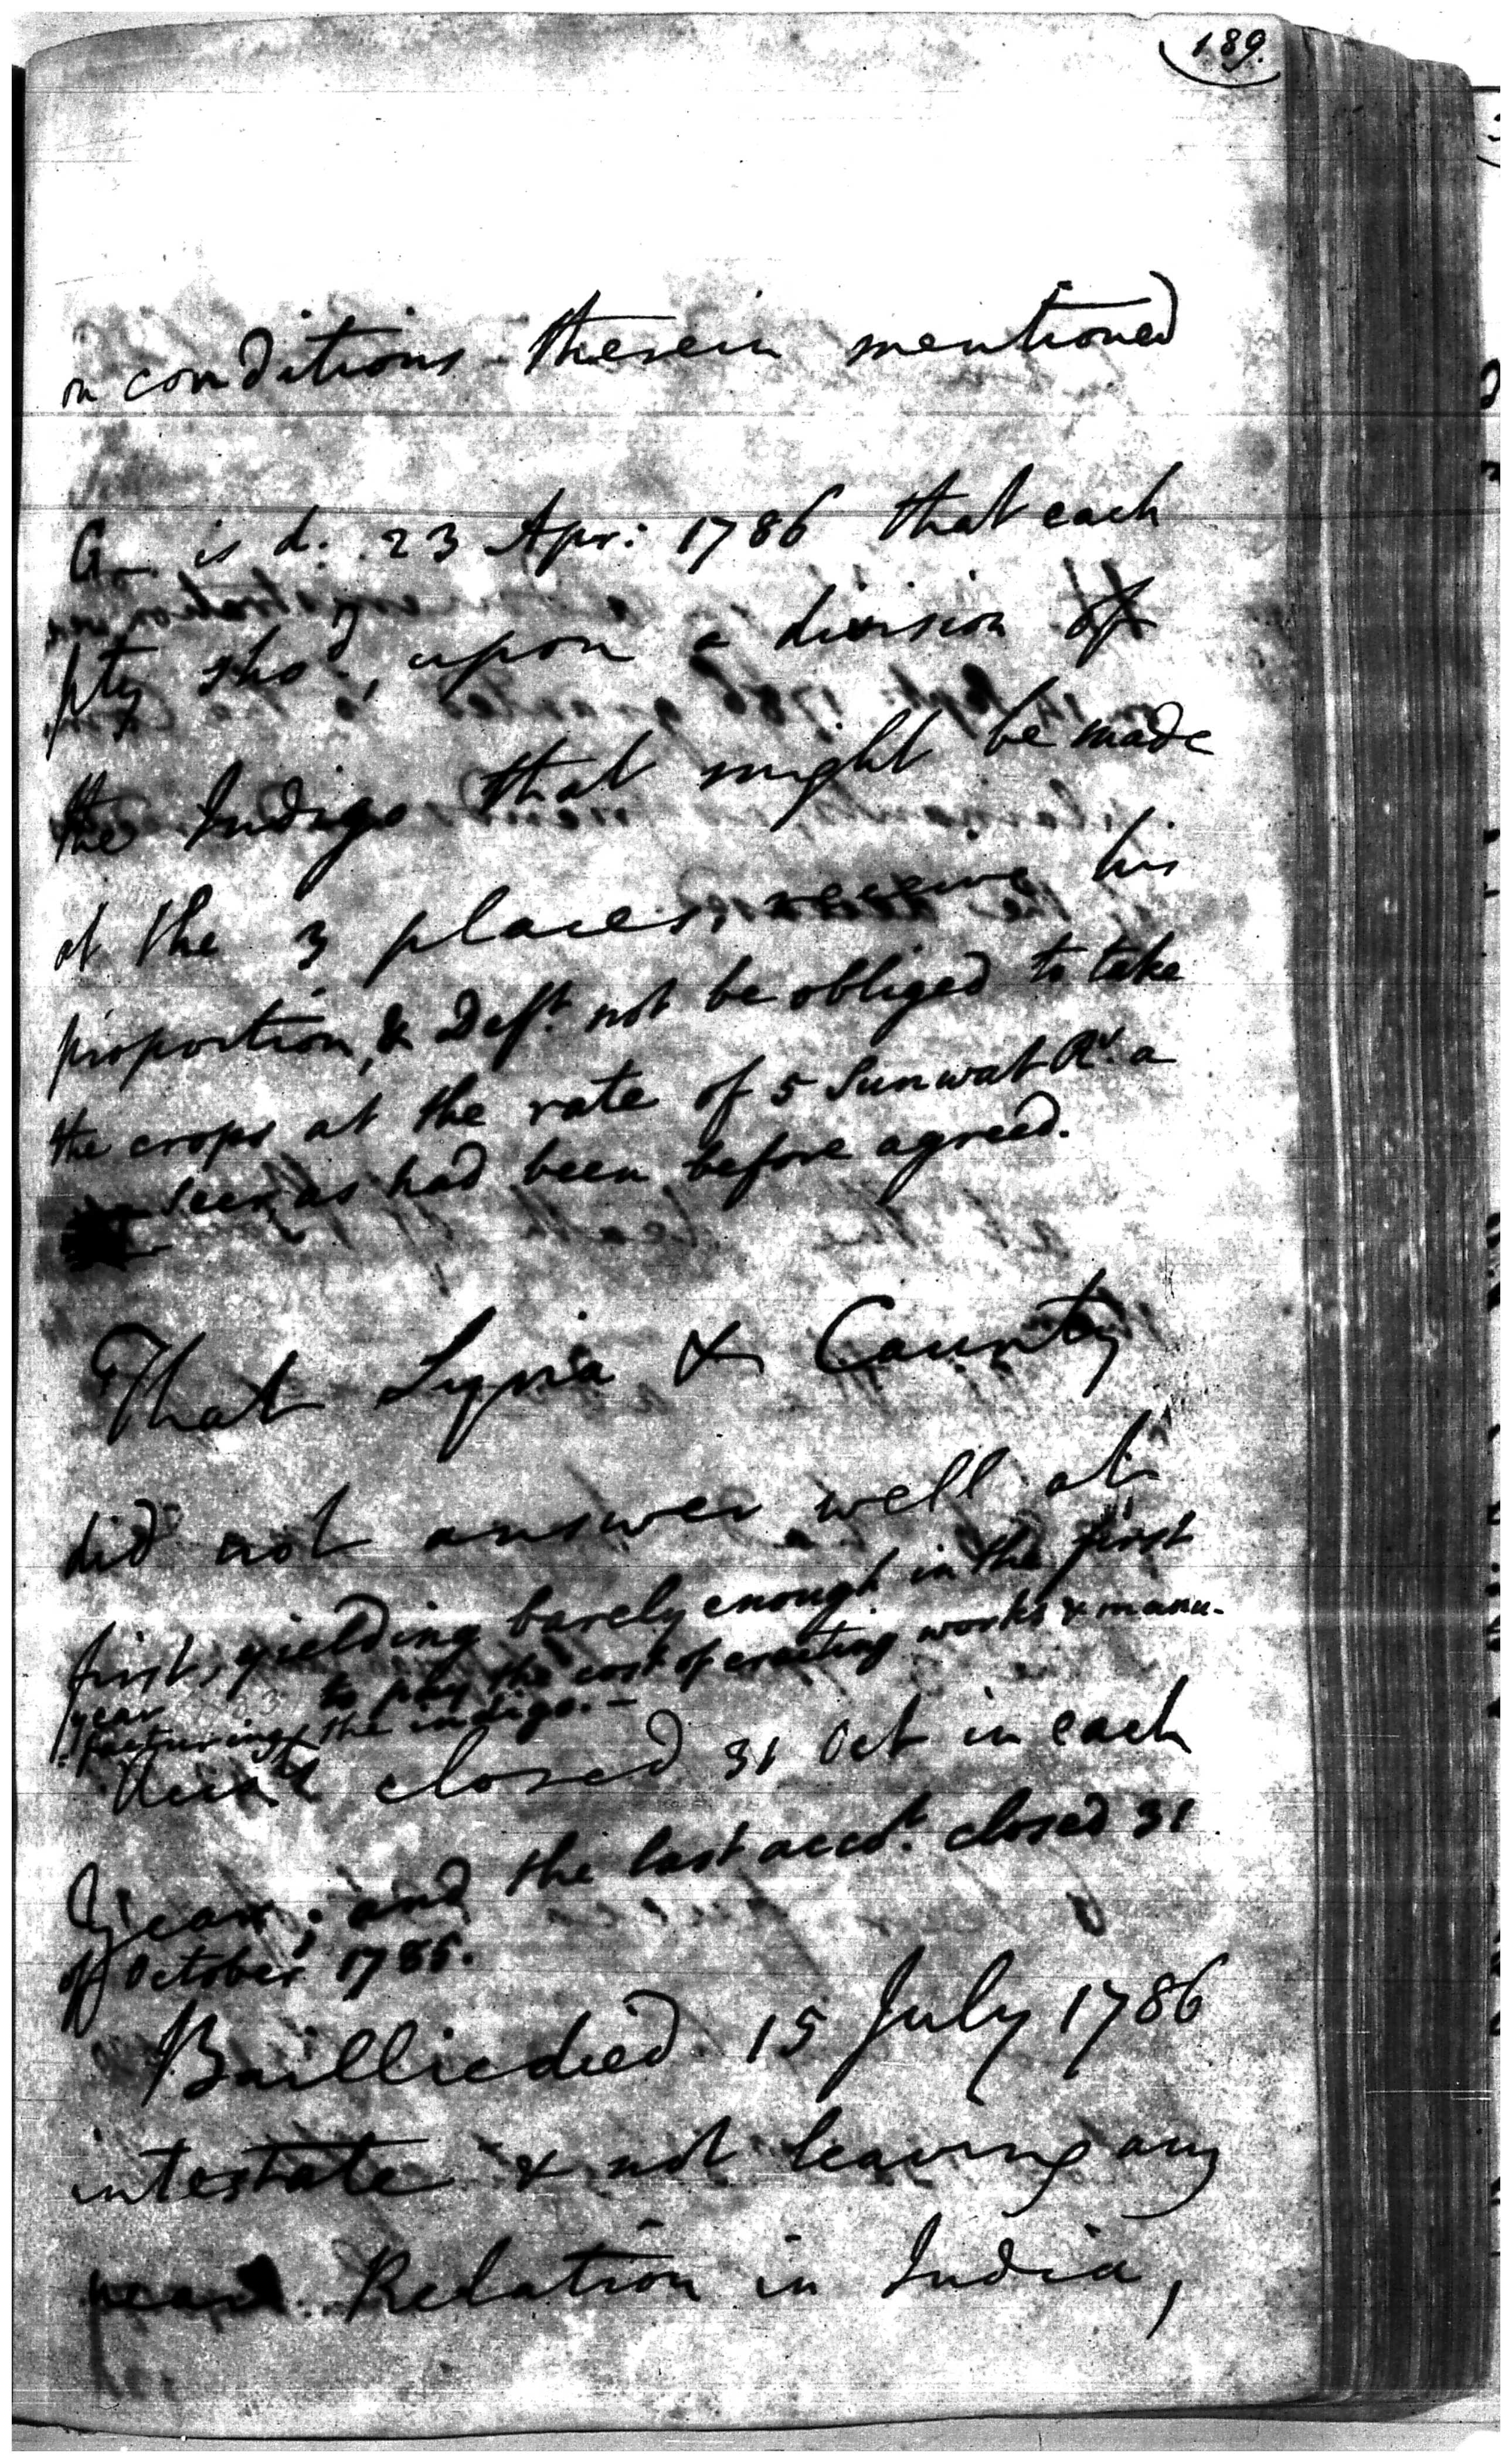 189.
on conditions therein mentioned
is d. 23 Apr: 1786 that each
pty sho.d, upon a division of
the Indigo that might be made
at the 3 places, receive his
proportion, & Deft. not be obliged to take
the crops at the rate of 5 Sunwat Rs. a
seer, as had been before agreed.
That Lyria & Counity
did not answer well at
first, yielding barely enough in the first
year to pay the cost of erecting works & manu-
facturing the indigo. -
closed 31 Oct in each
Year; and the last acct. closed 31
of October 1785.
Baillie died 15 July 1786
intestate & not leaving any
near Relation in India,